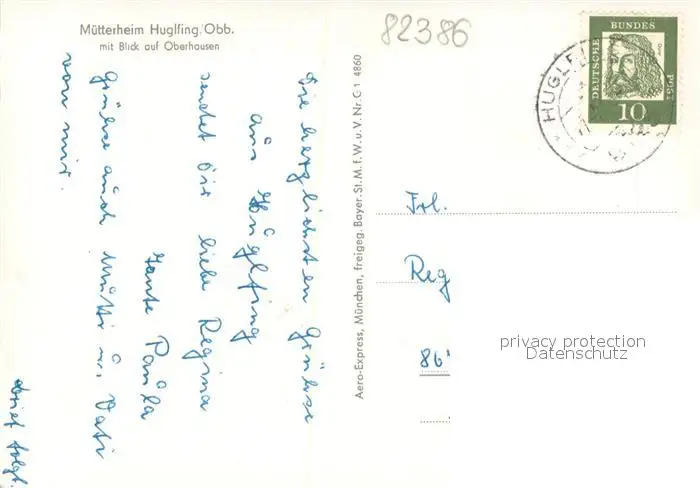 Mütterheim Huglfing/Obb.
mit Blick auf Oberhausen
82386
Die herzlichsten Grüsse
aus Huglfing
sendet Dir liebe Regina
Tante Paula
Grüsse auch Mutti u. Vati
von mir.
Brief folgt.
Aero-Express, München, freigeg. Bayer. St. M. f. W. u. V. Nr. G 1 4860
DEUTSCHE
BUNDES
POST
Dürer
10
HUGLFI
Frl.
Reg
86
privacy protection
Datenschutz